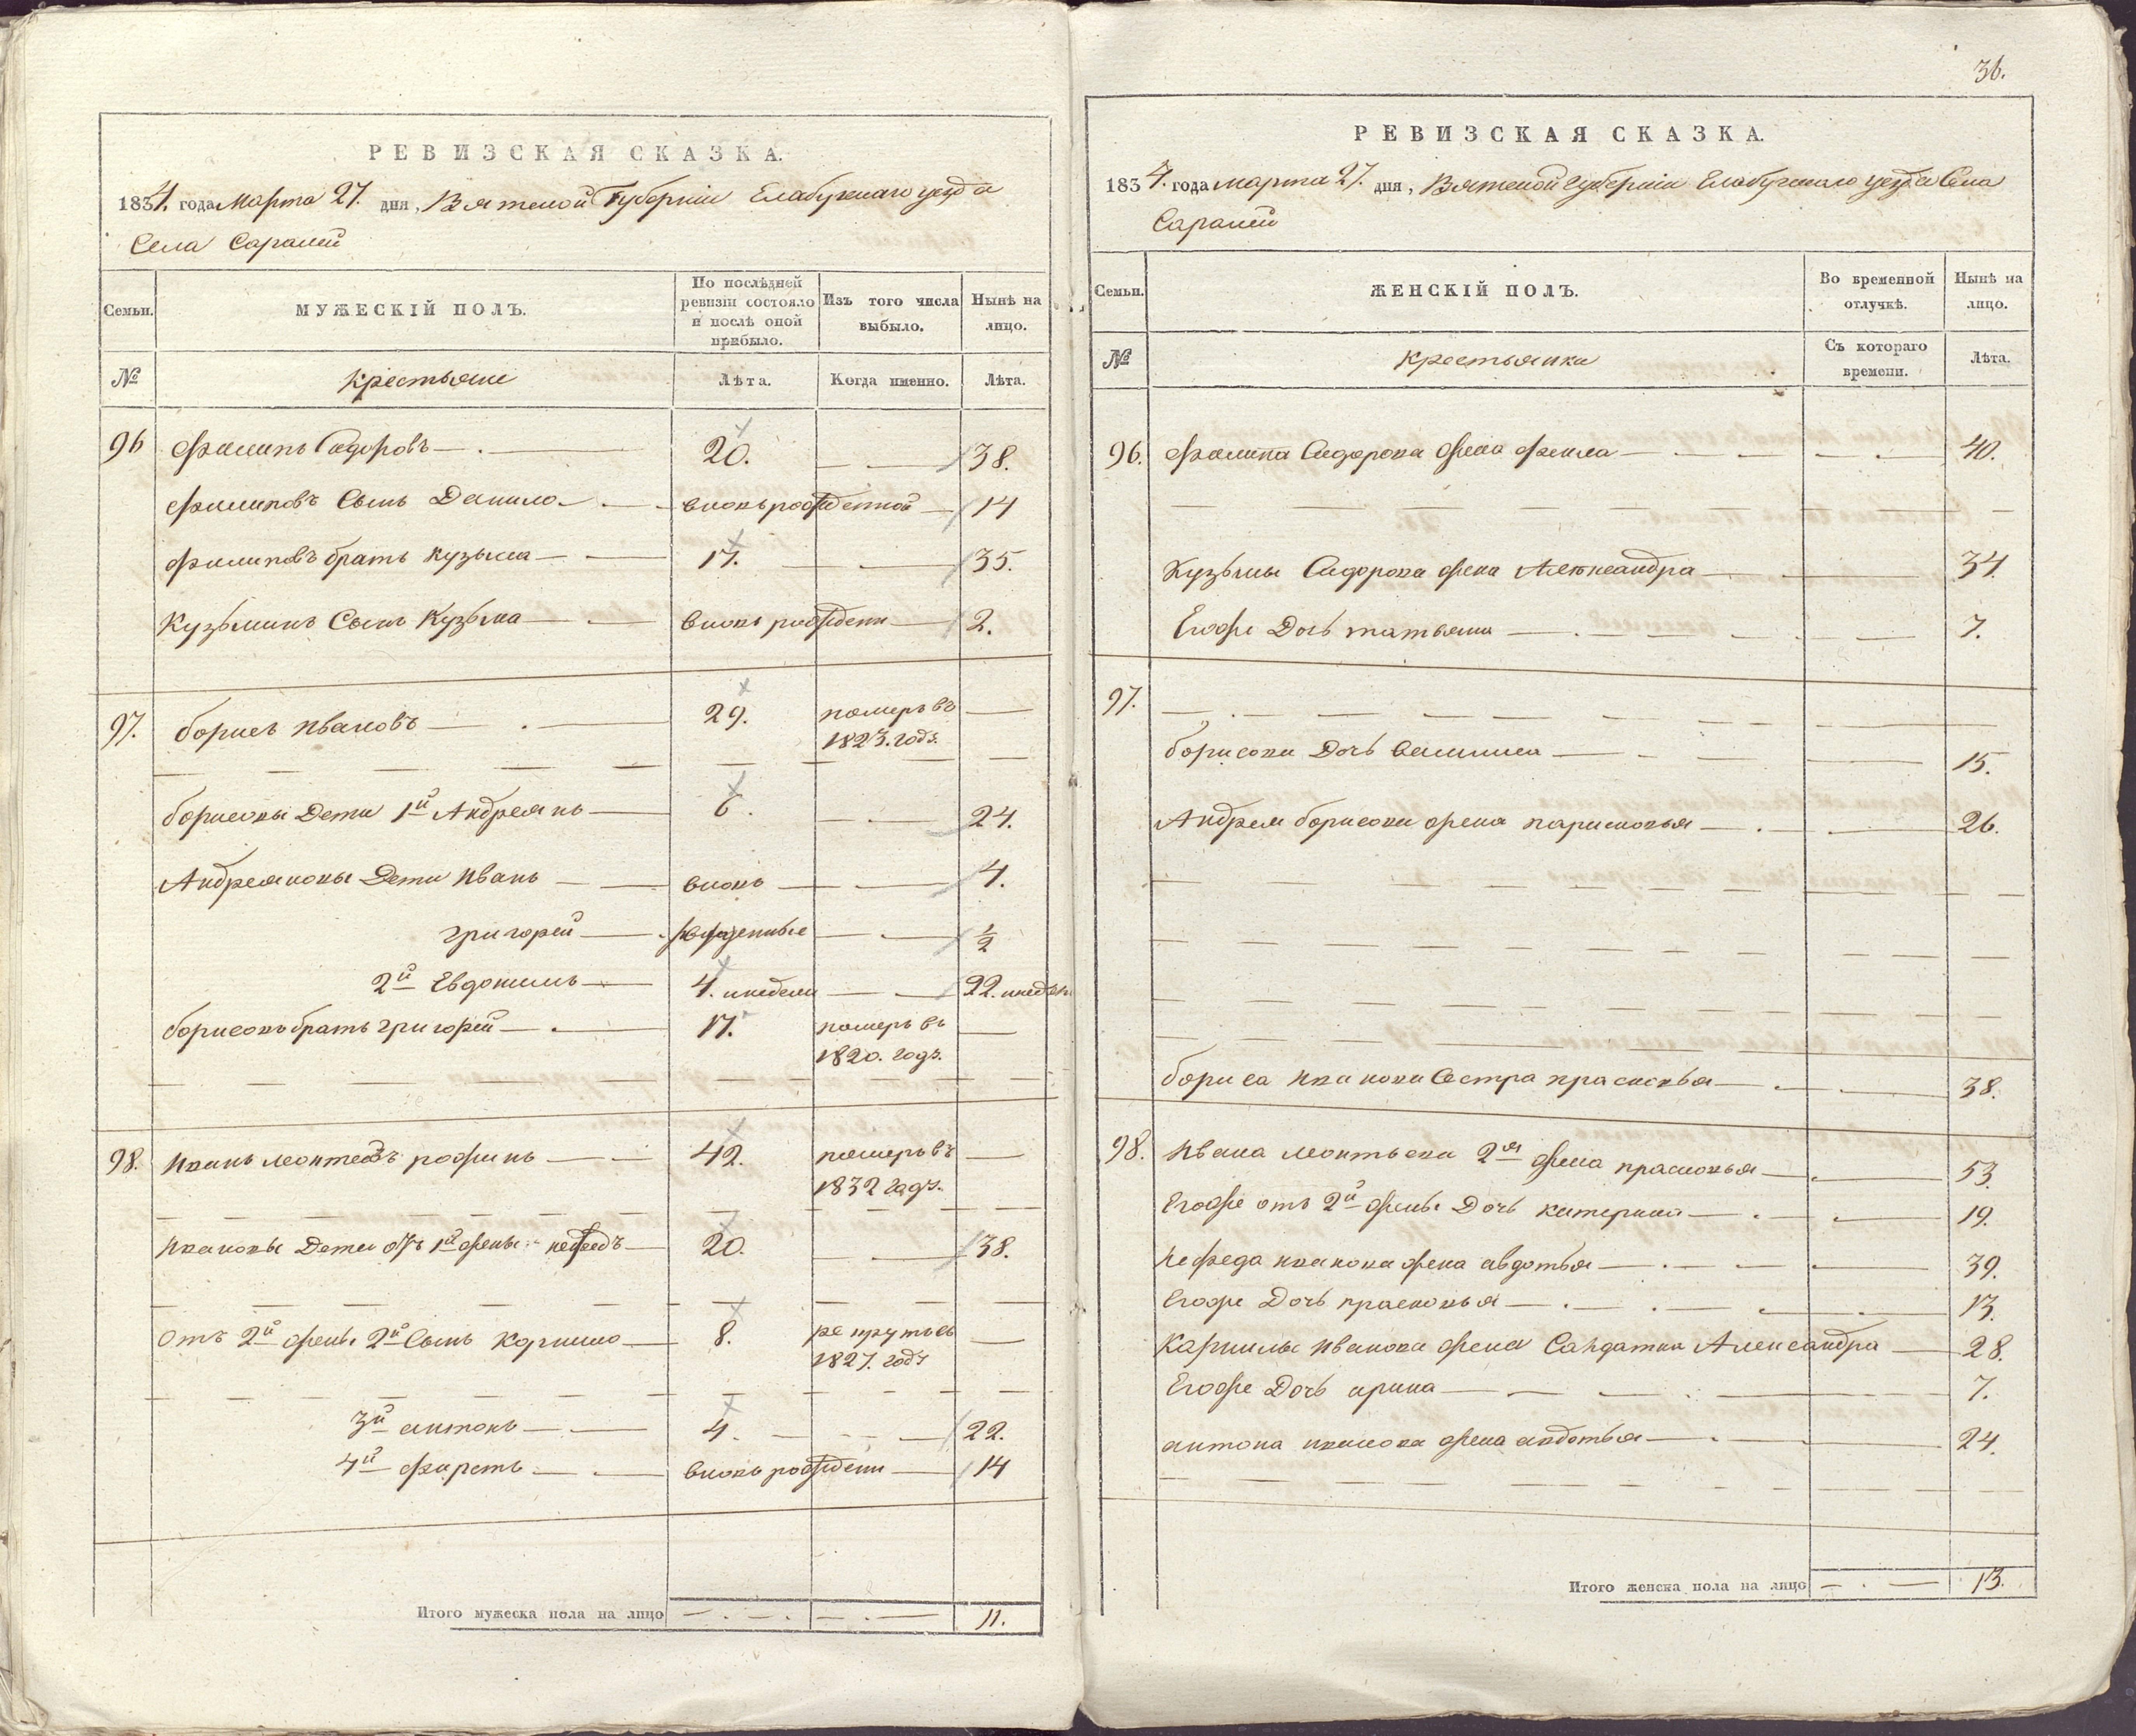 РЕВИЗСКАЯ СКАЗКА.
1834. года Марта 27. дня, Вятской Губернiи Елабужскаго уезда
Села Саралей
Семьи.
МУЖЕСКIЙ ПОЛЪ.
По послѣдней ревизiи состояло и послѣ оной прибыло.
Изъ того числа выбыло.
Нынѣ на лицо.
№
Крестьяне
Лѣта.
Когда именно.
Лѣта.
96 Филипъ Сидоровъ 20. 38.
Филиповъ Сынъ Данило вновьрожденной 14
Филиповъ братъ Кузьма 17. 35.
Кузьминъ Сынъ Кузьма вновь рожден 2.
97. борисъ Ивановъ 29. померъ въ
1823. годъ.
борисовы Дети 1й Андреянъ 6. 24.
Андреяновы Дети Иванъ вновь 4.
григорей рожденные 1/2
2й Евдокимъ 4. инедели 22. инедели
борисовъ братъ григорей 17. померъ въ
1820. годъ.
98. Иванъ леонтевъ рожинъ 42. померъ въ
1832 годъ.
Ивановы Дети отъ 1й жены нефедъ 20. 38.
Отъ 2й жены 2й Сынъ Корнило 8. рекрутъ въ
1827. годъ
3й антонъ 4. 22.
4й фирстъ вновь рожден 14
Итого мужеска пола на лицо 11.
36.
РЕВИЗСКАЯ СКАЗКА.
1834. года марта 27. дня, Вятской губернiи Елабужскаго уезда Села
Саралей
Семьи.
ЖЕНСКIЙ ПОЛЪ.
Во временной отлучкѣ.
Нынѣ на лицо.
№
Крестьянки
Съ котораго времени.
Лѣта.
96. Филипа Сидорова жена фекла 40.
Кузьмы Сидорова жена Александра 34
Егоже Дочь татьяна 7.
97.
борисова Дочь Василиса 15.
Андрея борисова жена парасковья 26.
бориса Иванова Сестра прасковья 38.
98. Ивана леонтьева 2я жена прасковья 53
Егоже отъ 2й жены Дочь катерина 19.
Нефеда иванова жена авдотья 39.
Егоже Дочь прасковья 13
Корнилы Иванова жена Салдатка Александра 28.
Егоже Дочь арина 7.
антона иванова жена авдотья 24.
Итого женска пола на лицо 13.